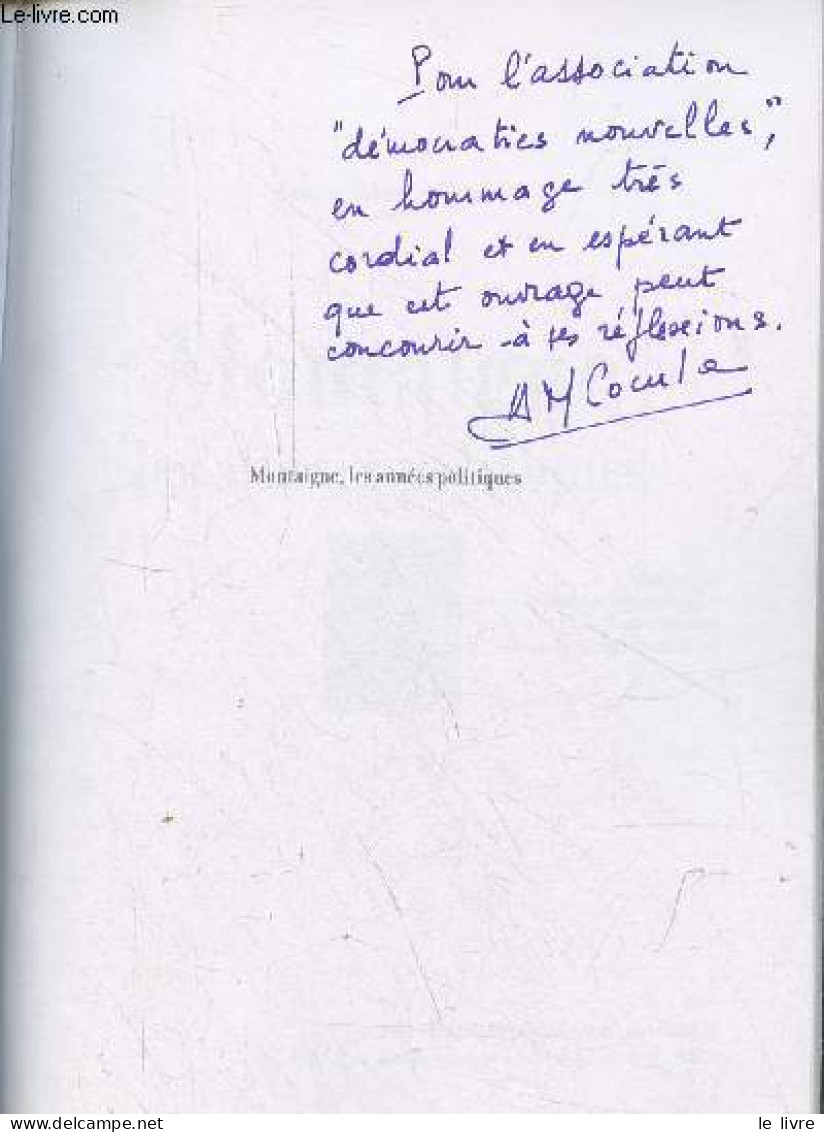 Le-livre.com
Pour l'association
"démocraties nouvelles",
en hommage très
cordial et en espérant
que cet ouvrage peut
concourir à ses réflexions.
AM Cocula
Montaigne, les années politiques
le livre